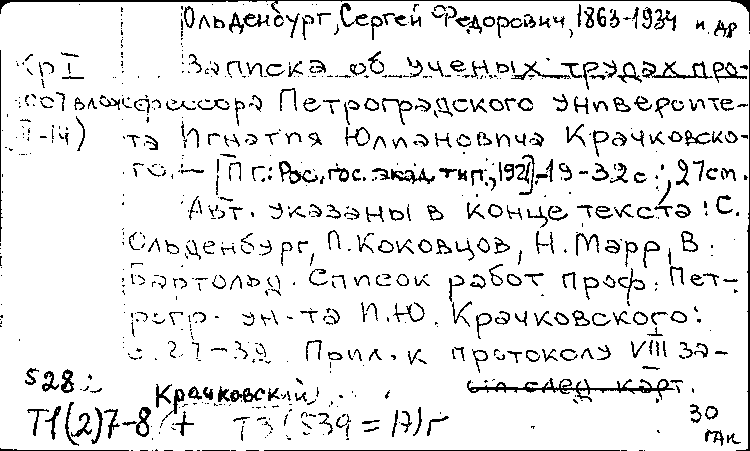 Ольденбург, Сергей Федорович, 1863-1934 и др
Кр I Записка об ученых трудах про-
фессора Петроградского университе-
II-14) та Игнатия Юлиановича Крачковско-
го. — [Пг.: Рос. гос. акад. тип., 1921]. - 19-32 с.; 27 cm.
Авт. указаны в конце текста: С.
Ольденбург, П. Коковцов, Н. Марр, В.
Бартольд. Список работ проф. Пет-
рогр. ун-та И.Ю. Крачковского:
с. 27-32. Прил. к протоколу VIII за-
528: см. след. карт.
Крачковский
Т1(2)7-8 + Т3(539=17)г
30